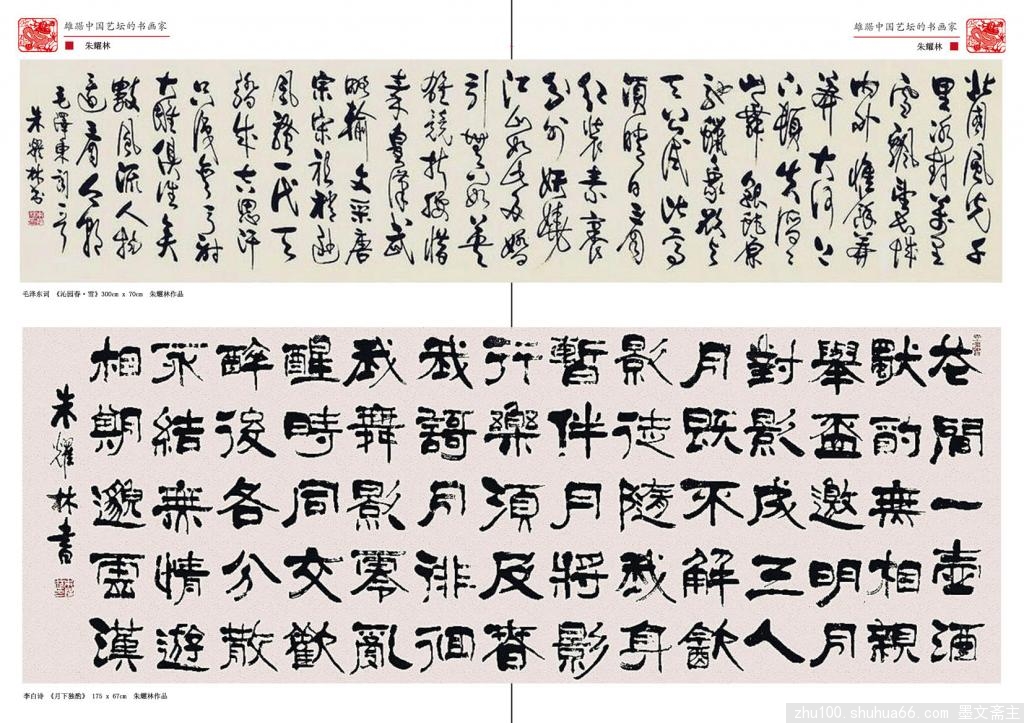 雄踞中国艺坛的书画家
朱耀林
雄踞中国艺坛的书画家
朱耀林
北國風光千
里冰封萬里
雪飄望長城
内外惟餘莽
莽大河上
下頓失滔滔
山舞銀蛇原
馳蠟象欲與
天公試比高
須晴日看
紅裝素裹
分外妖嬈
江山如此多嬌
引無數英
雄競折腰惜
秦皇漢武
略輸文采唐
宗宋祖稍遜
風騷一代天
驕成吉思汗
只識彎弓射
大雕俱往矣
數風流人物
還看今朝
毛澤東詞一首
朱耀林書
毛泽东词 《沁园春·雪》300cm x 70cm 朱耀林作品
花間一壺酒
獨酌無相親
舉盃邀明月
對影成三人
月既不解飲
影徒隨我身
暫伴月將影
行樂須及春
我謌月徘徊
我舞影零亂
醒時同交歡
醉後各分散
永結無情遊
相期邈雲漢
朱耀林書
李白诗 《月下独酌》 175 x 67cm 朱耀林作品
zhu100.shuhua66.com 墨文斋主